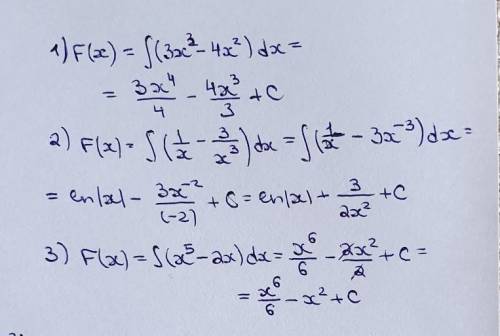 1) F(x) = ∫(3x³ - 4x²) dx =
= 3x⁴/4 - 4x³/3 + C
2) F(x) = ∫(1/x - 3/x³) dx = ∫(1/x - 3x⁻³) dx =
= ln|x| - 3x⁻²/(-2) + C = ln|x| + 3/2x² + C
3) F(x) = ∫(x⁵ - 2x) dx = x⁶/6 - 2x²/2 + C =
= x⁶/6 - x² + C